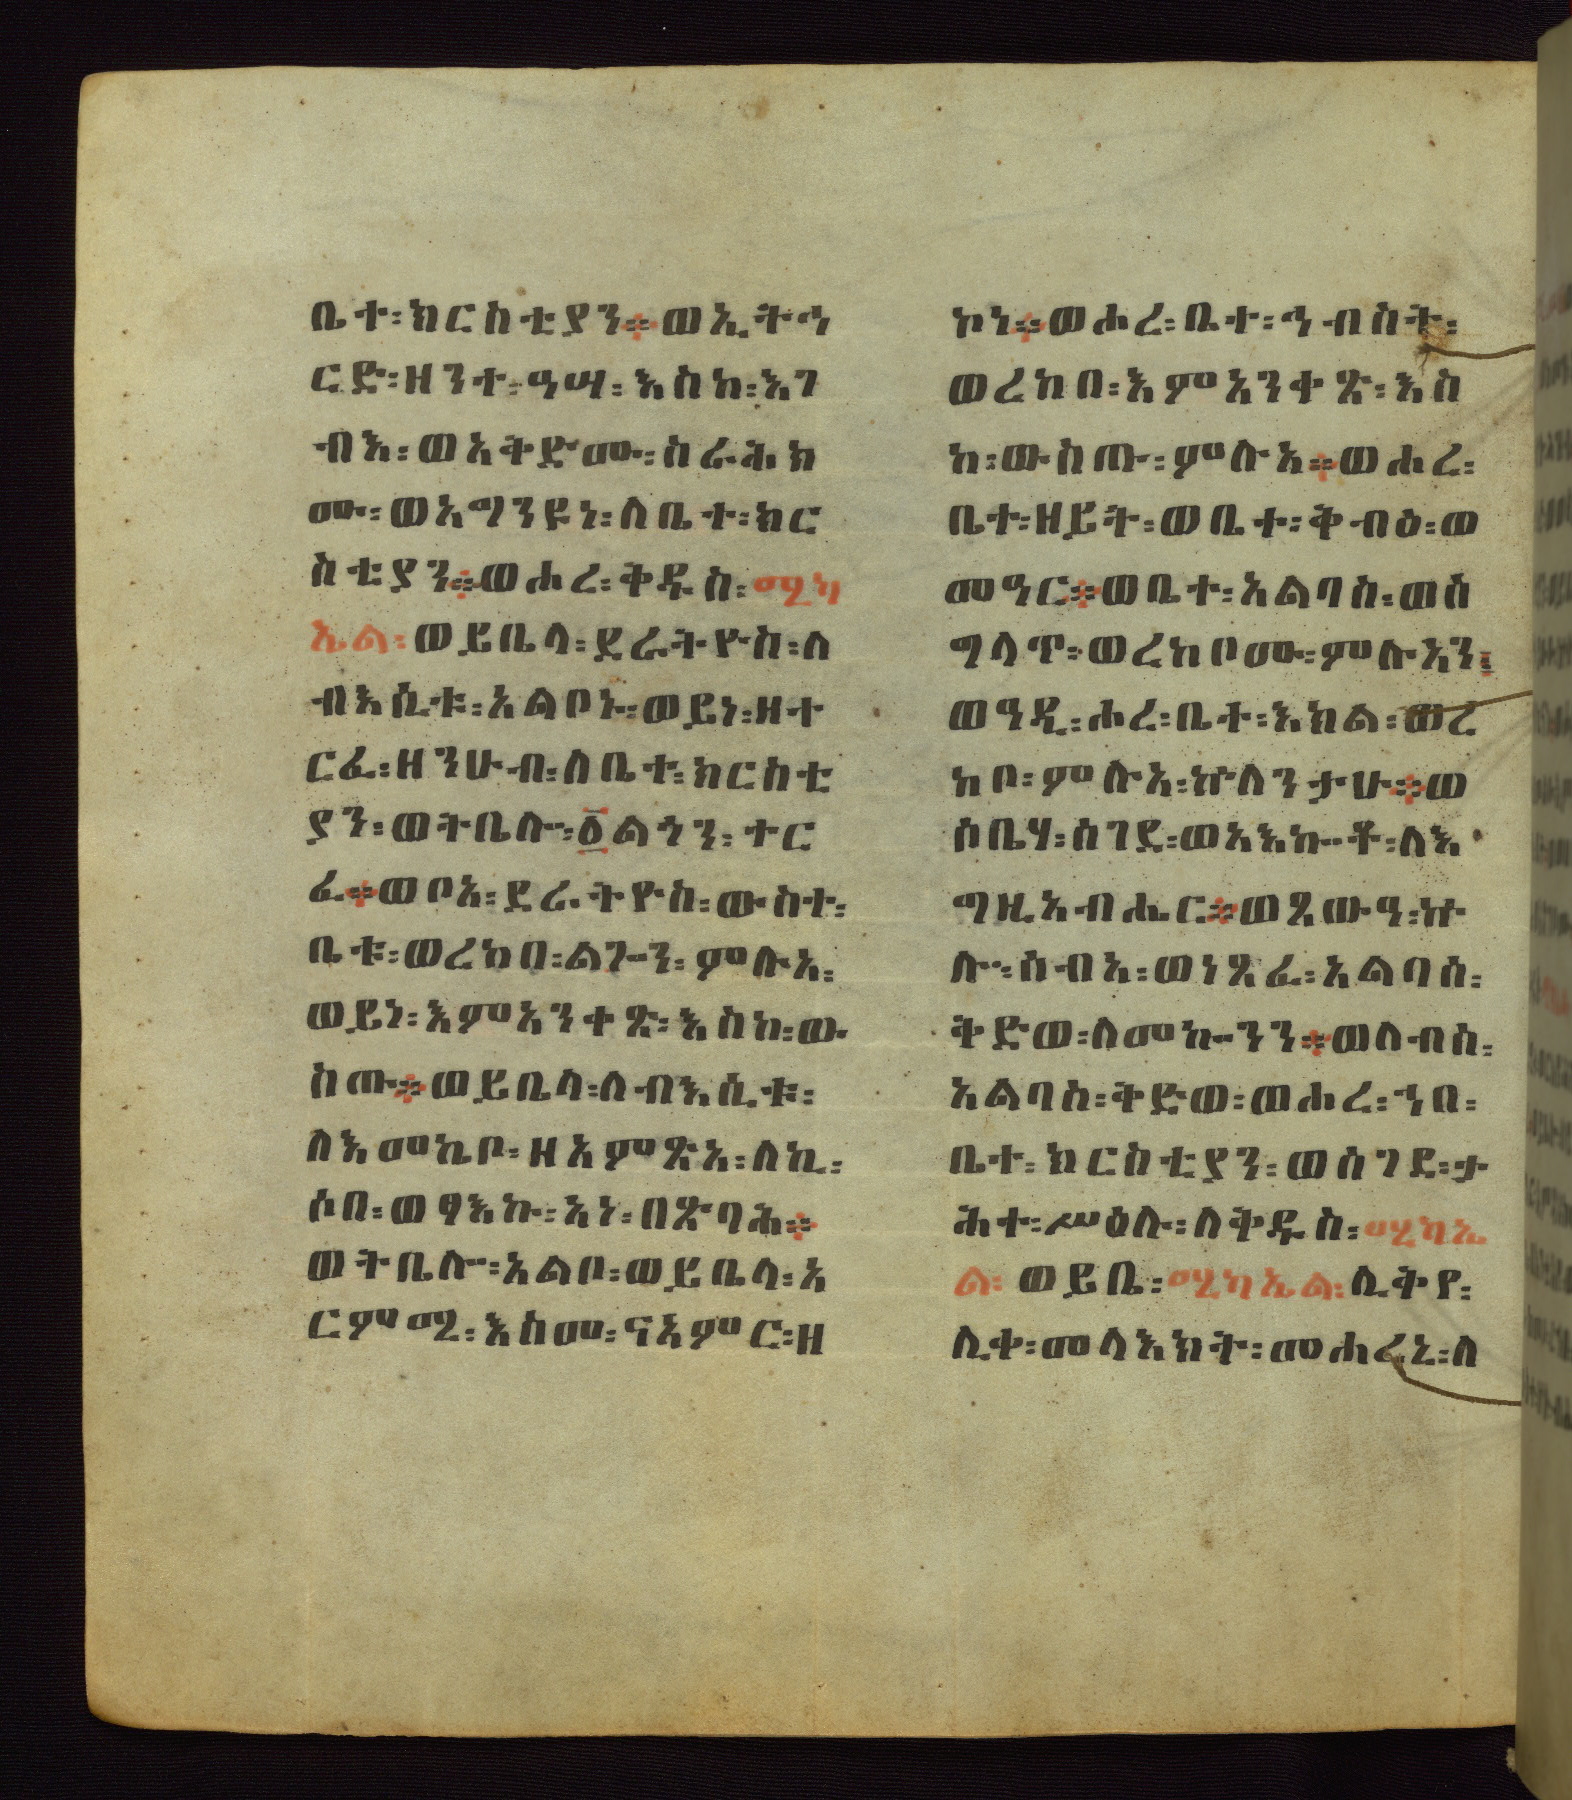 ቤተ፡ክርስቲያን፨ወኢትኅ
ርድ፡ዘንተ፡ዓሣ፡እስከ፡እገ
ብእ፡ወአቅድሙ፡ስራሕክ
ሙ፡ወአማንዩነ፡ለቤተ፡ክር
ስቲያን፨ወሐረ፡ቅዱስ፡ሚካ
ኤል፡ወይቤላ፡ደራትዮስ፡ለ
ብእሲቱ፡አልቦኑ፡ወይነ፡ዘተ
ርፈ፡ዘንሁብ፡ለቤተ፡ክርስቲ
ያን፡ወትቤሎ፡፩ልጎን፡ተር
ፈ፨ወቦአ፡ደራትዮስ፡ውስተ፡
ቤቱ፡ወረከበ፡ልጐን፡ምሉአ፡
ወይነ፡እምአንቀጽ፡እስከ፡ው
ስጡ፨ወይቤላ፡ለብእሲቱ፡
ለእመኬቦ፡ዘአምጽአ፡ለኪ፡
ሶበ፡ወፃእኩ፡አነ፡በጽባሕ፨
ወትቤሎ፡አልቦ፡ወይቤላ፡አ
ርምሚ፡እስመ፡ናአምር፡ዘ
ኮነ፨ወሐረ፡ቤተ፡ኅብስት፡
ወረከበ፡እምአንቀጽ፡እስ
ከ፡ውስጡ፡ምሉአ፨ወሐረ፡
ቤተ፡ዘይት፡ወቤተ፡ቅብዕ፡ወ
መዓር፨ወቤተ፡አልባስ፡ወሰ
ግላጥ፡ወረከቦሙ፡ምሉአን፡
ወዓዲ፡ሐረ፡ቤተ፡እክል፡ወረ
ከቦ፡ምሉአ፡ኵለንታሁ፨ወ
ሶቤሃ፡ሰገደ፡ወአእኰቶ፡ለእ
ግዚአብሔር፨ወጸውዓ፡ኵ
ሎ፡ሰብአ፡ወነጸፈ፡አልባሰ፡
ቅድወ፡ለመኰንን፨ወለብሰ፡
አልባሰ፡ቅድወ፡ወሐረ፡ኀበ፡
ቤተ፡ክርስቲያን፡ወሰገደ፡ታ
ሕተ፡ሥዕሉ፡ለቅዱስ፡ሚካኤ
ል፡ወይቤ፡ሚካኤል፡ሊቅየ፡
ሊቀ፡መላእክት፡መሐረኒ፡ለ